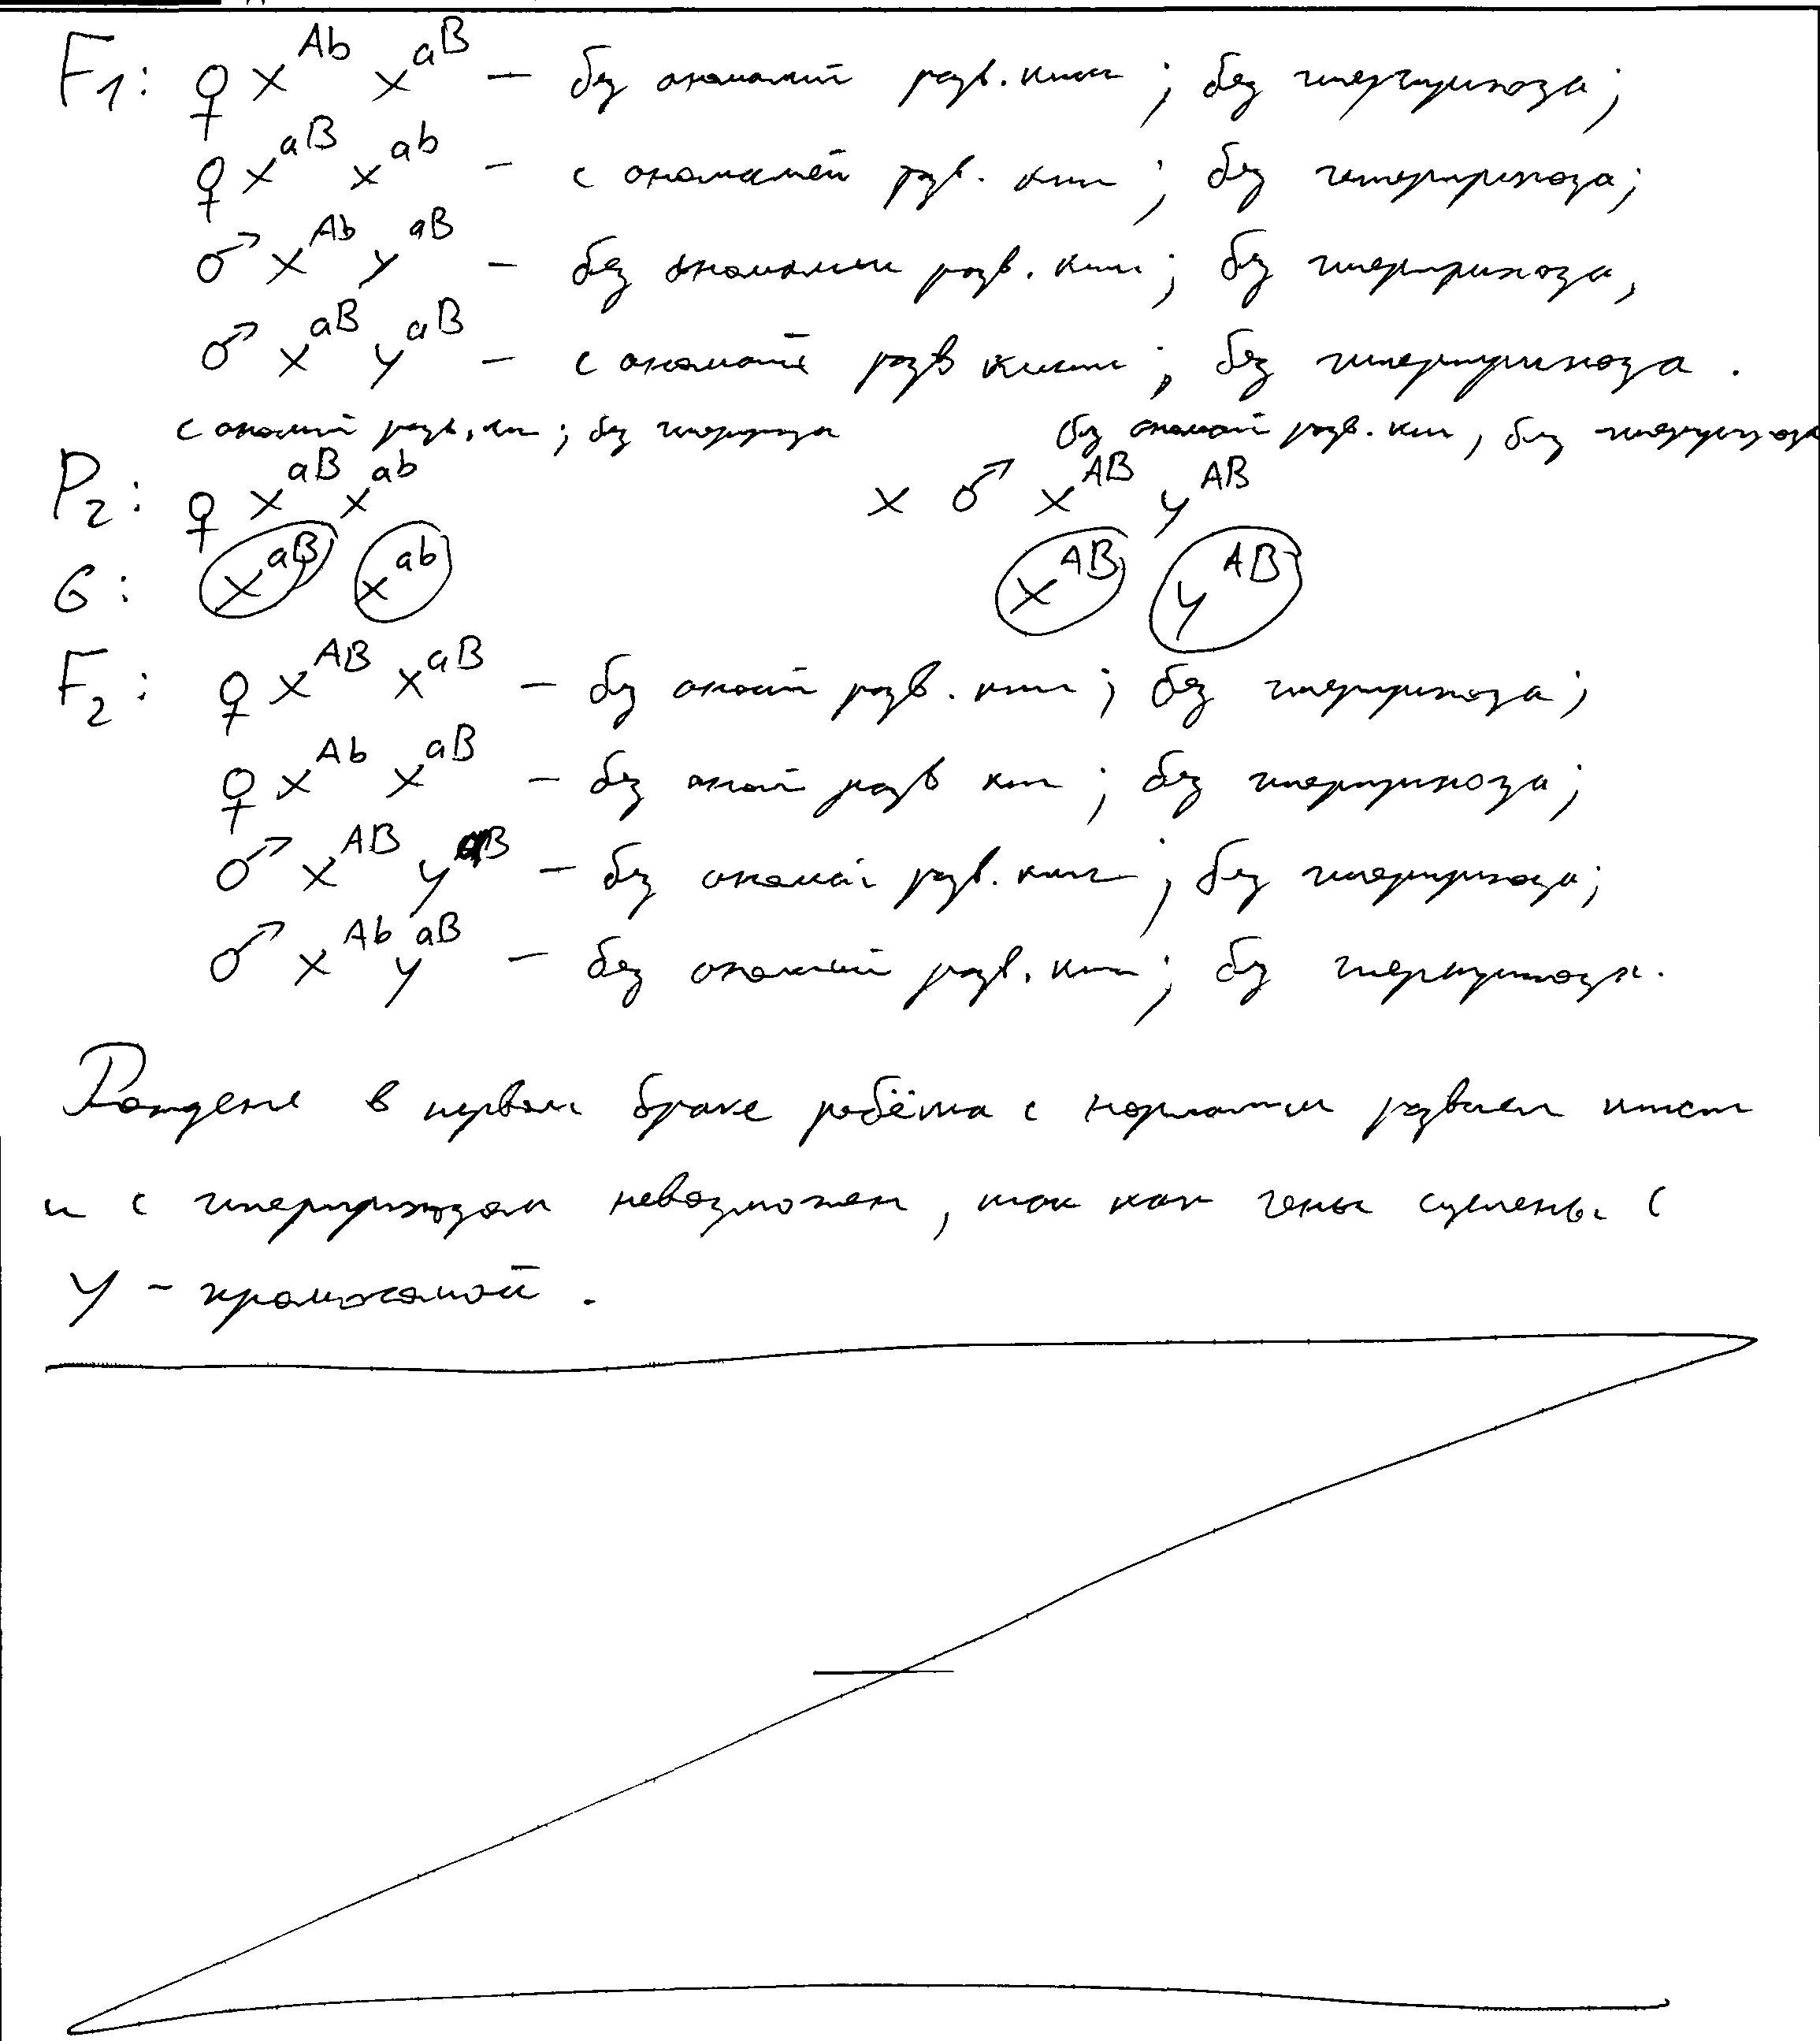 F1: ♀ X^Ab X^aB — без аномалий разв. кист; без гипертрихоза;
♀ X^aB X^ab — с аномалией разв. кист; без гипертрихоза;
♂ X^Ab Y^aB — без аномалии разв. кист; без гипертрихоза,
♂ X^aB Y^aB — с аномалией разв кисти; без гипертрихоза.
с аномалий разв. кис; без гипертрихоза без аномалий разв. кист, без гипертрихоза
P2: ♀ X^aB X^ab × ♂ X^AB Y^AB
G: X^aB X^ab X^AB Y^AB
F2: ♀ X^AB X^aB — без аномалий разв. кист; без гипертрихоза;
♀ X^Ab X^aB — без аномалий разв кист; без гипертрихоза;
♂ X^AB Y^aB — без аномалий разв. кист; без гипертрихоза;
♂ X^Ab Y^aB — без аномалий разв. кист; без гипертрихоза.
Рождение в первом браке ребёнка с нормальным развитием кист
и с гипертрихозом невозможен, так как гены сцеплены с
Y - хромосомой.